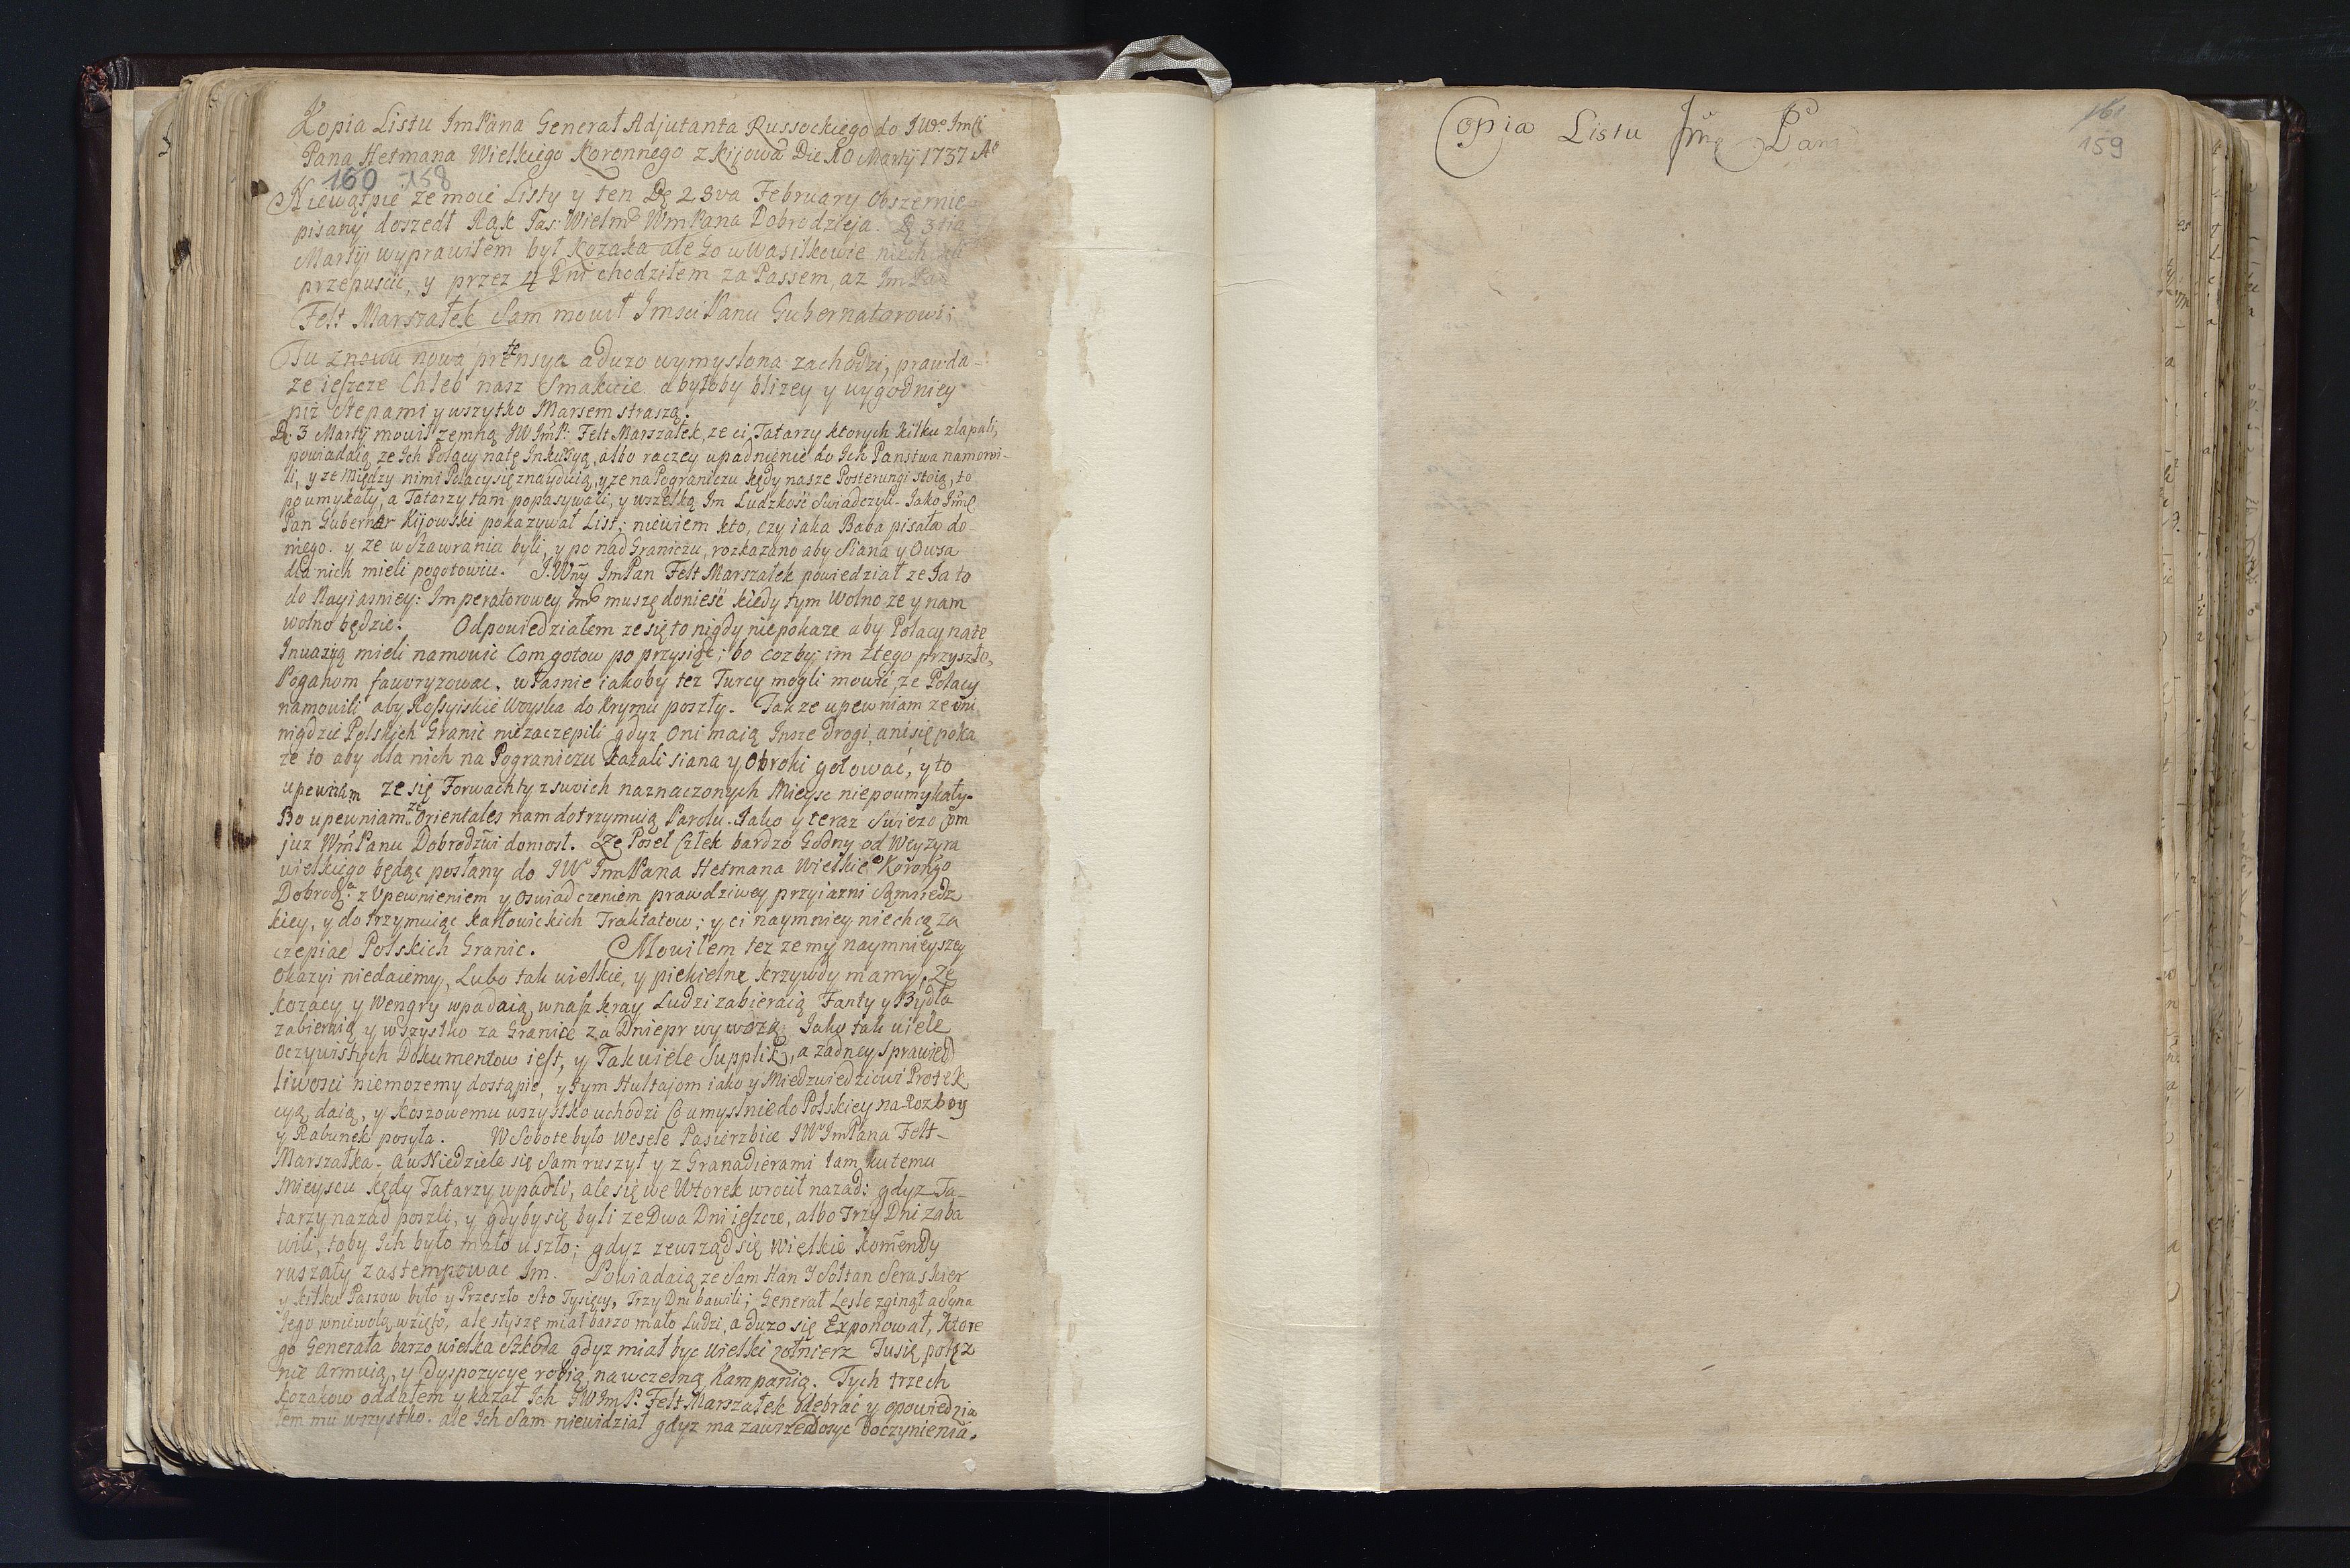 Kopia Listu ImPana Generał Adjutanta Russockiego do JWo ImCi
Pana Hetmana Wielkiego Koronnego z Kijowa Die 10 Martij 1737 Ao
160 158
Niewątpie ze moie Listy y ten D: 23va February Obszernie
pisany doszedł Rąk Jas: Wielmo WmPana Dobrodzieja. D: 3tia
Martij wyprawiłem był Kozaka ale Go w Wasilkowie
przepuscić, y przez 4 Dni chodziłem za Passem, az Im Pan
Felt Marszałek Sam mowił ImsciPanu Gubernatorowi;
Tu znowu nowa pretensya a duzo wymyslona zachodzi, prawda
ze ieszcze Chleb nasz Smakuie. a byłoby blizey y wygodniey
niz Stepami y wszytko Marsem straszą.
D: 3 Martij mowił zemną JW ImP: Felt Marszałek, ze ci Tatarzy ktorych kilku złapali,
powiadaią ze Ich Polacy natę Inkursyą, albo raczey upadnienie do Ich Panstwa namowi-
li, y ze między nimi Polacy się znayduią, y ze na Pograniczu kędy nasze Posterungi stoią, to
poumykały, a Tatarzy tam popasywali, y wszelką Im Ludzkość Swiadczyli. Jako Imć
Pan Guberner Kijowski pokazywał List; niewiem kto, czy iaka Baba pisała do-
niego. y ze w Szawrania byli, y ponad Graniczu, rozkazano aby Siana y Owsa
dla nich mieli pogotowiu. J.Wny ImPan Felt Marszałek powiedział ze Ja to
do Nayiasniey: Imperatorowey Imo muszę donieść kiedy tym Wolno ze y nam
wolno będzie. Odpowiedziałem ze się to nigdy niepokaze aby Polacy nate
Inwazyą mieli namowić Com gotow poprzysiąc; bo cozby im ztego przyszło,
Poganom faworyzowac. własnie iakoby tez Turcy mogli mowić, ze Polacy
namowili aby Rossyiskie Woyska do Krymu poszły. Takze upewniam ze oni
nigdzie Polskich Granic niezaczepili gdyz Oni maią Insze drogi, ani się poka
ze to aby dla nich na Pograniczu kazali siana y Obroki gotować, y to
upewniam ze się Forwachty z swoich naznaczonych Mieysc niepoumykały.
Bo upewniam ze Orientales nam dotrzymuią Parolu. Jako y teraz Swiezo om
juz WmPanu Dobrodzwi doniosł. Ze Poseł Człek bardzo Godny od Weyzyra
wielkiego będąc posłany do JWo ImPana Hetmana Wielkiego Korongo
Dobrodza: z Upewnieniem y Oswiadczeniem prawdziwey przyiazni Sąmsiedz
kiey, y dotrzymuiąc Karłowickich Traktatow; y ci naymniey niechcą za
czepiac Polskich Granic. Mowiłem tez ze my naymnieyszey
Okazyi niedaiemy, Lubo tak wielkie, y piekielne krzywdy mamy, Ze
Kozacy y Wengry wpadaią, w nasz kray Ludzi zabieraią Fanty y Bydła
zabieraią y wszystko za Granice za Dniepr wywozą: Jako tak wiele
Oczywistych Dokumentow iest, y Tak wiele Supplik, a zadney sprawied
liwosci niemozemy dostąpic, y tym Hultajom iako y Miedzwiedziowi Protek
cyą, daią, y Koszowemu wszystko uchodzi Co umyslnie do Polskiey na Rozboy
y Rabunek posyła. W Sobote było Wesele Pasierzbice JWo ImPana Felt-
Marszałka. a w Niedziele się Sam ruszył y z Granadierami tam ku temu
Mieyscu kędy Tatarzy wpadli, ale się we Wtorek wrocił nazad: gdyz Ta-
tarzy nazad poszli, y gdyby się byli ze Dwa Dni ieszcze, albo Trzy Dni zaba
wili, toby Ich było mało uszło; gdyz zewsząd się Wielkie Komendy
ruszały zastempowac Im. Powiadaią ze Sam Han y Sołtan Seraskier
y kilku Paszow było y Przeszło Sto Tysięcy, Trzy Dni bawili; Generał Lesle zginął a Syna
Jego wniewolą wzięto, ale słyszę miał barzo mało Ludzi, a duzo się Exponował, Ktore
go Generała barzo wielka Szkoda gdyz miał byc Wielki zołnierz Tu się potęz
nie armuią, y Dyspozycye robią, na wczesną Kampanią. Tych trzech
Kozakow oddałem y kazał Ich JW ImP: Felt Marszałek odebrać y opowiedzia
łem mu wszystko. ale Ich Sam niewidział gdyz ma zawsze Dosyc Doczynienia.
Copia Listu Jmć Pan
161
159